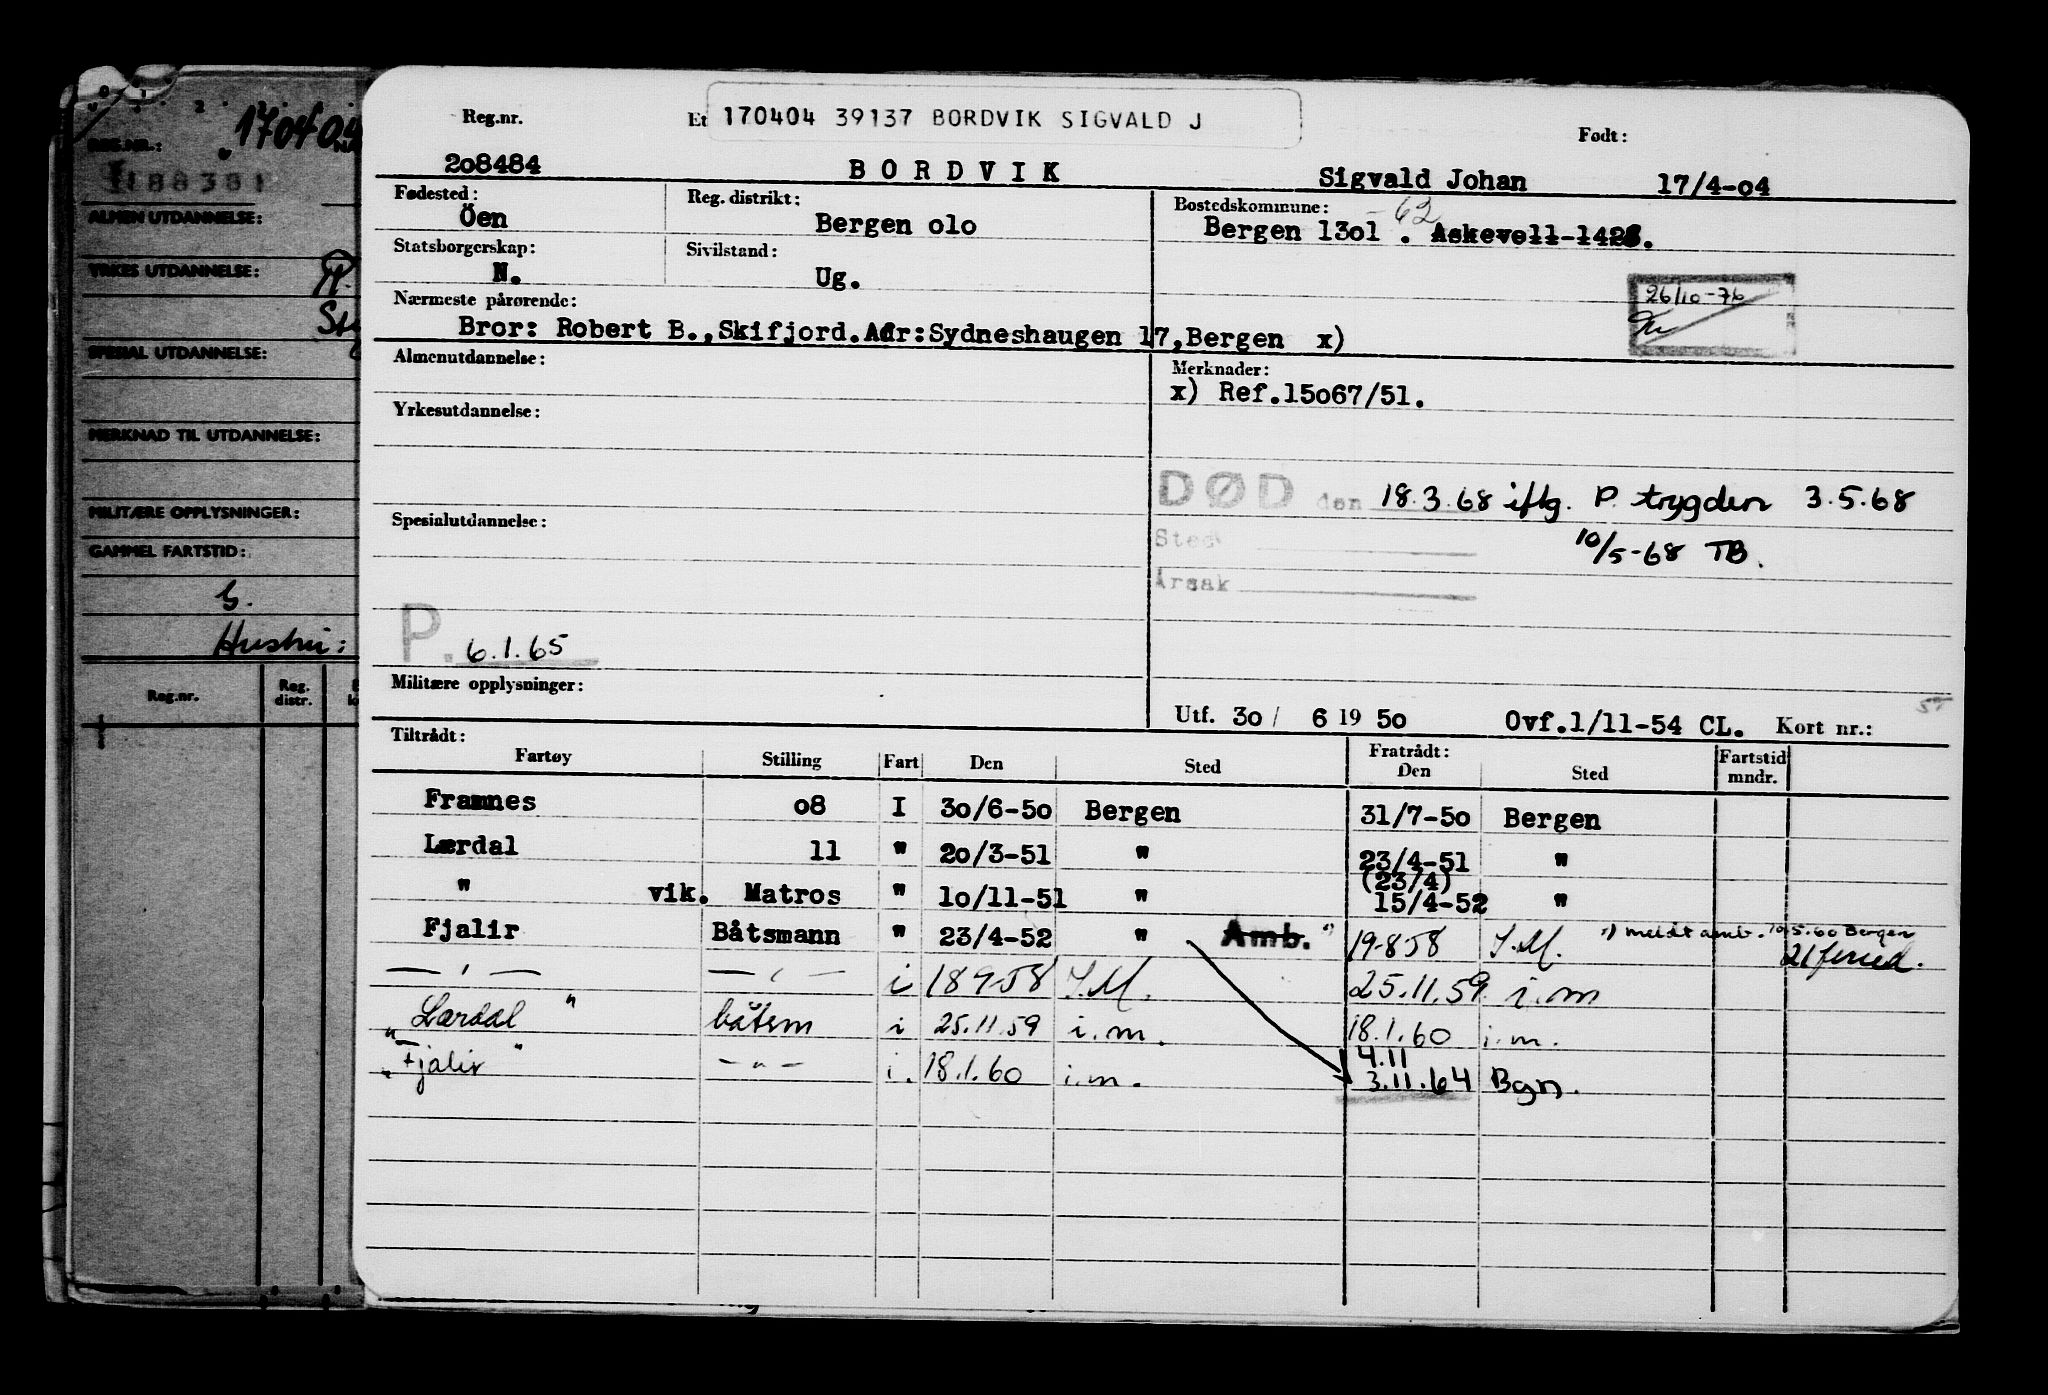 170404
REG.NR.:
188381
ALMEN UTDANNELSE:
YRKES UTDANNELSE:
SPESIAL UTDANNELSE:
MERKNAD TIL UTDANNELSE:
MILITÆRE OPPLYSNINGER:
GAMMEL FARTSTID:
G.
Hustru:
Reg.nr. Reg. distr.
Reg.nr. Et 170404 39137 BORDVIK SIGVALD J Født:
2o8484 BORDVIK Sigvald Johan 17/4-o4
Fødested: Reg. distrikt: Bostedskommune: -62
Öen Bergen olo Bergen 13ol . Askevoll-1428.
Statsborgerskap: Sivilstand:
N. Ug.
26/10-76
Nærmeste pårørende:
Bror: Robert B.,Skifjord.Adr:Sydneshaugen 17,Bergen x)
Almenutdannelse: Merknader:
x) Ref.15o67/51.
Yrkesutdannelse:
DØD den 18.3.68 iflg. P. trygden 3.5.68
Spesialutdannelse: Sted 10/5-68 TB.
Årsak
P. 6.1.65
Militære opplysninger:
Utf. 3o/ 6 19 5o Ovf.1/11-54 CL. Kort nr.:
Tiltrådt: Fratrådt:
Fartøy Stilling Fart Den Sted Den Sted Fartstid mndr.
Framnes o8 I 3o/6-5o Bergen 31/7-5o Bergen
Lærdal 11 " 2o/3-51 " 23/4-51 "
(23/4)
" vik. Matros " 1o/11-51 " 15/4-52 "
Fjalir Båtsmann " 23/4-52 " Amb. ") 19-8-58 I.M. ") meldt amb. 10.5.60 Bergen
21 
— " — — " — i 18-9-58 I.M. 25.11.59 i.m
"Lærdal" båtsm i 25.11.59 i.m. 18.1.60 i.m.
4.11
"Fjalir" - " - i. 18.1.60 i.m. 3.11.64 Bgn.